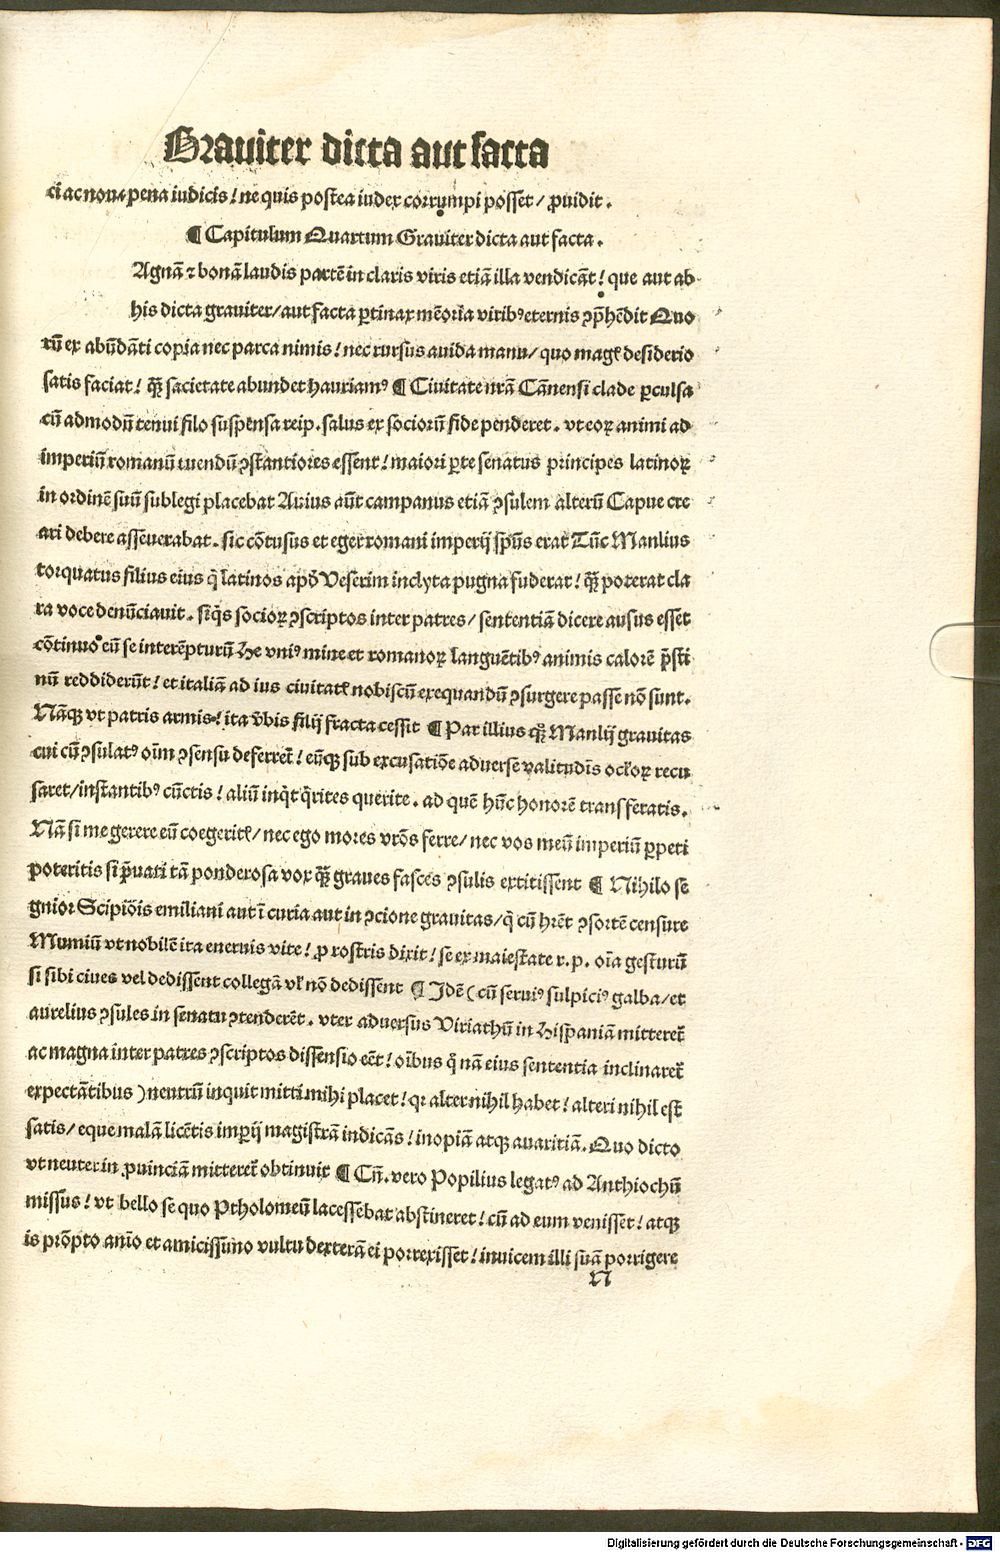 Grauiter dicta aut facta
ci ac noua pena iudicis! ne quis postea iudex corrumpi posset/ ꝓuidit.
¶ Capitulum Quartum Grauiter dicta aut facta.
Agnā ⁊ bonā laudis partē in claris viris etiā illa vendicāt! que aut ab
his dicta grauiter/ aut facta ꝑtinax mēoria viribꝰ eternis ꝯp̄hēdit Quo
rū ex abūdāti copia nec parca nimis! nec rursus auida manu/ quo magꝭ desiderio
satis faciat! ꝙ̄ sacietate abundet hauriamꝰ ¶ Ciuitate nrā Cānensi clade ꝑculsa
cū admodū tenui filo suspensa reip. salus ex sociorū fide penderet. vt eoꝝ animi ad
imperiū romanū tuendū ꝯstantiores essent! maiori ꝑte senatus principes latinoꝝ
in ordinē suū sublegi placebat Anius aūt campanus etiā ꝯsulem alterū Capue cre
ari debere asseuerabat. sic cōtusus et eger romani imperij sp̄us erat Tūc Manlius
torquatus filius eius q̇ latinos apd̄ Veserim inclyta pugna fuderat! ꝙ̄ poterat cla
ra voce denūciauit. siq̇s socioꝝ ꝯscriptos inter patres/ sententiā dicere ausus esset
cōtinuo eū se interēpturū He vniꝰ mine et romanoꝝ languētibꝰ animis calorē p̄sti
nū reddiderūt! et italiā ad ius ciuitatꝭ nobiscū exequandū ꝯsurgere passe nō sunt.
Nāqꝫ vt patris armis! ita v̄bis filij fracta cessit ¶ Par illius qꝫ Manlij grauitas
cui cū ꝯsulatꝰ oīm ꝯsensu deferret̄! eūqꝫ sub excusatiōe aduerse valitudīs ocl̄oꝝ recu
saret/ instantibꝰ cūctis! aliū inq̇t q̇rites querite. ad quē hūc honorē transferatis.
Nā si me gerere eū coegeritꝭ/ nec ego mores vrōs ferre/ nec vos meū imperiū ꝑpeti
poteritis si p̄uati tā ponderosa vox ꝙ̄ graues fasces ꝯsulis extitissent ¶ Nihilo se
gnior Scipiōis emiliani aut ī curia aut in ꝯcione grauitas/ q̇ cū hrēt ꝯsortē censure
Mumiū vt nobilē ita eneruis vite! ꝓ rostris dixit! se ex maiestate r. p. oīa gesturū
si sibi ciues vel dedissent collegā vl̄ nō dedissent ¶ Idē (cū seruiꝰ sulpiciꝰ galba/ et
aurelius ꝯsules in senatu ꝯtenderēt. vter aduersus Viriathū in Hispaniā mitteret̄
ac magna inter patres ꝯscriptos dissensio eēt! oībus q̊ nā eius sententia inclinaret̄
expectātibus) neutrū inquit mitti mihi placet! qꝛ alter nihil habet! alteri nihil est
satis/ eque malā licētis imꝑij magistrā indicās! inopiā atqꝫ auaritiā. Quo dicto
vt neuter in ꝓuinciā mitteret̄ obtinuit ¶ Cn̄. vero Popilius legatꝰ ad Anthiochū
missus! vt bello se quo Ptholomeū lacessebat abstineret! cū ad eum venisset! atqꝫ
is prōpto anīo et amicissimo vultu dexterā ei porrexisset! inuicem illi suā porrigere
N
Digitalisierung gefördert durch die Deutsche Forschungsgemeinschaft - DFG